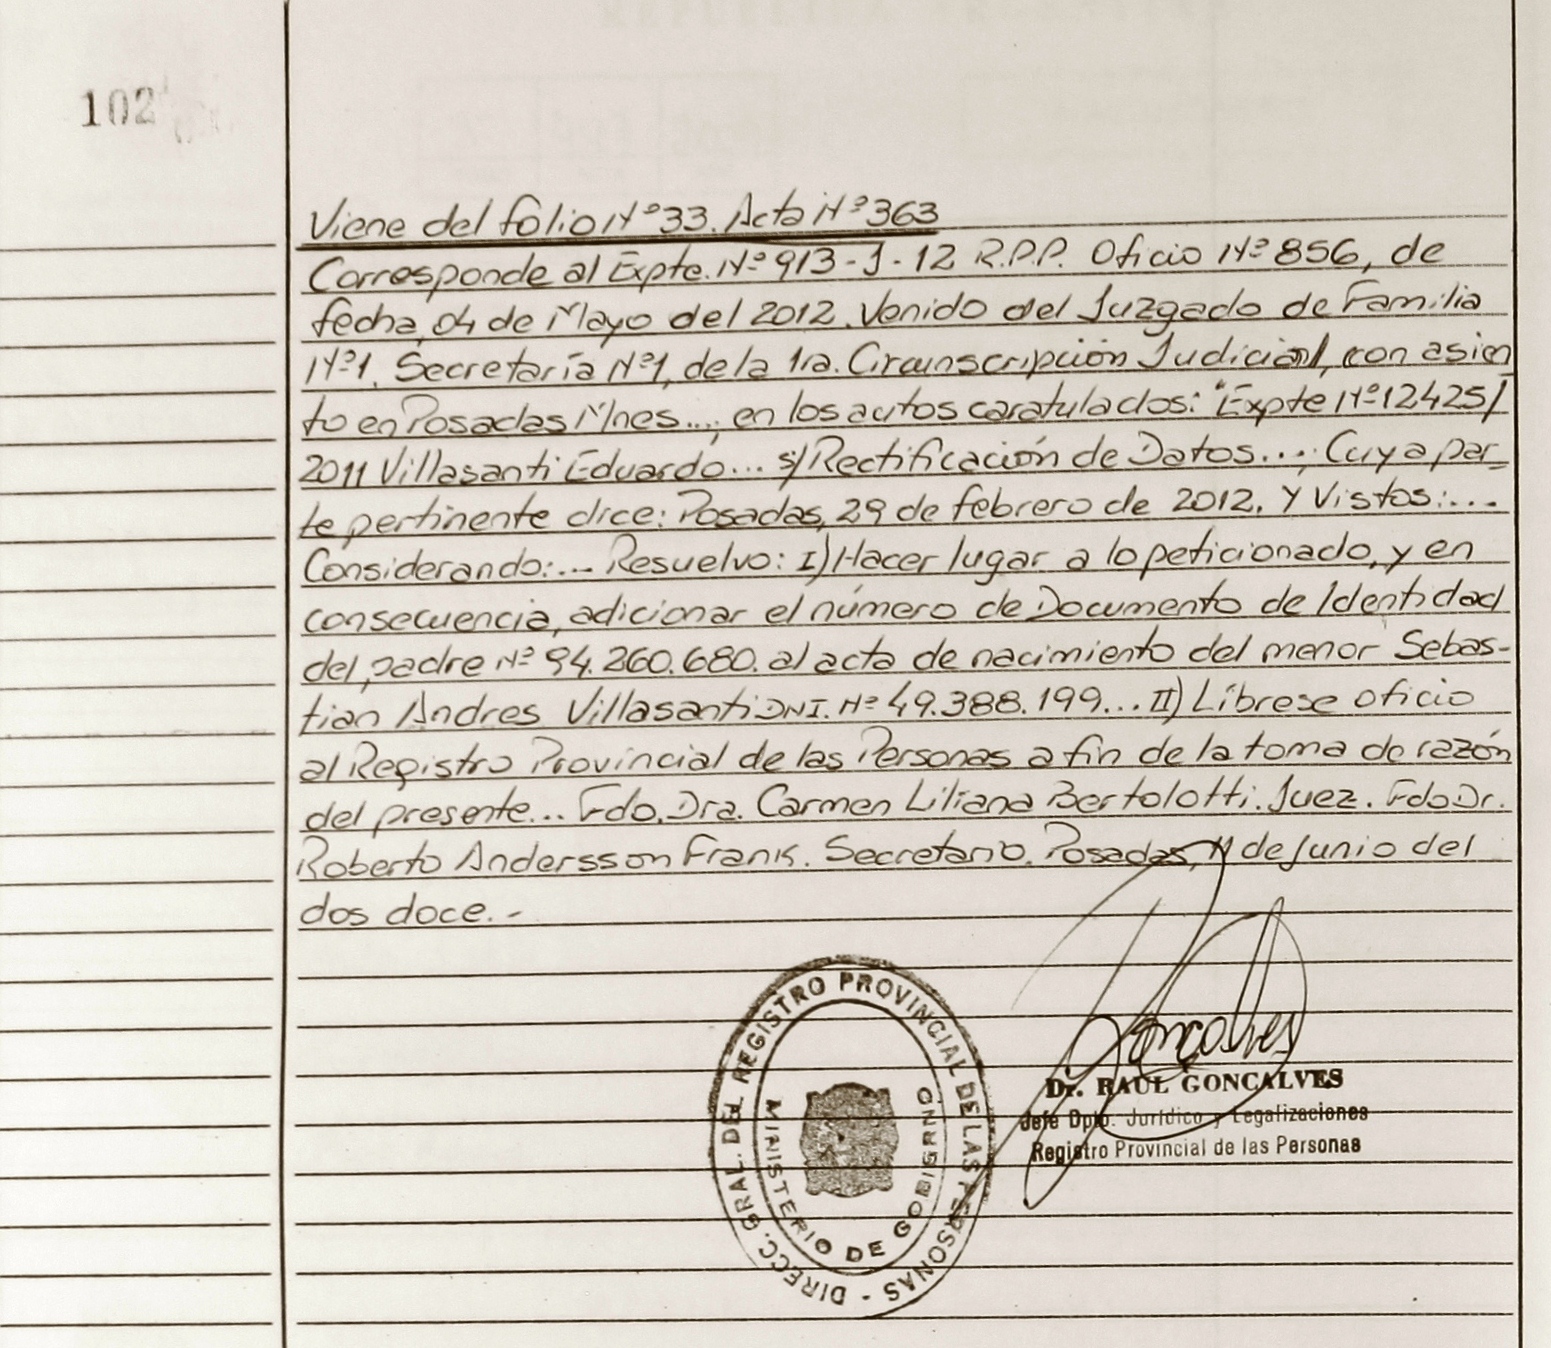 102
Viene del folio Nº 33. Acta Nº 363
Corresponde al Expte. Nº 913-J-12 R.P.P. Oficio Nº 856, de
fecha, 04 de Mayo del 2012. Venido del Juzgado de Familia
Nº1, Secretaría Nº1, de la 1ra. Circunscripción Judicial, con asien
to en Posadas Mnes..., en los autos caratulados: "Expte Nº 12425/
2011 Villasanti Eduardo... s/Rectificación de Datos...; Cuya par-
te pertinente dice: Posadas, 29 de febrero de 2012. Y Vistos:....
Considerando:.... Resuelvo: I) Hacer lugar a lo peticionado, y en
consecuencia, adicionar el número de Documento de Identidad
del padre Nº 94.260.680. al acta de nacimiento del menor Sebas-
tian Andres Villasanti DNI. Nº 49.388.199... II) Líbrese oficio
al Registro Provincial de las Personas a fin de la toma de razón
del presente... Fdo. Dra. Carmen Liliana Bertolotti. Juez. Fdo Dr.
Roberto Andersson Frank. Secretario. Posadas, 11 de Junio del
dos doce.-
DIRECC. GRAL. DEL REGISTRO PROVINCIAL DE LAS PERSONAS -
MINISTERIO DE GOBIERNO
Goncalves
Dr. RAUL GONCALVES
Jefe Dpto. Jurídico y Legalizaciones
Registro Provincial de las Personas